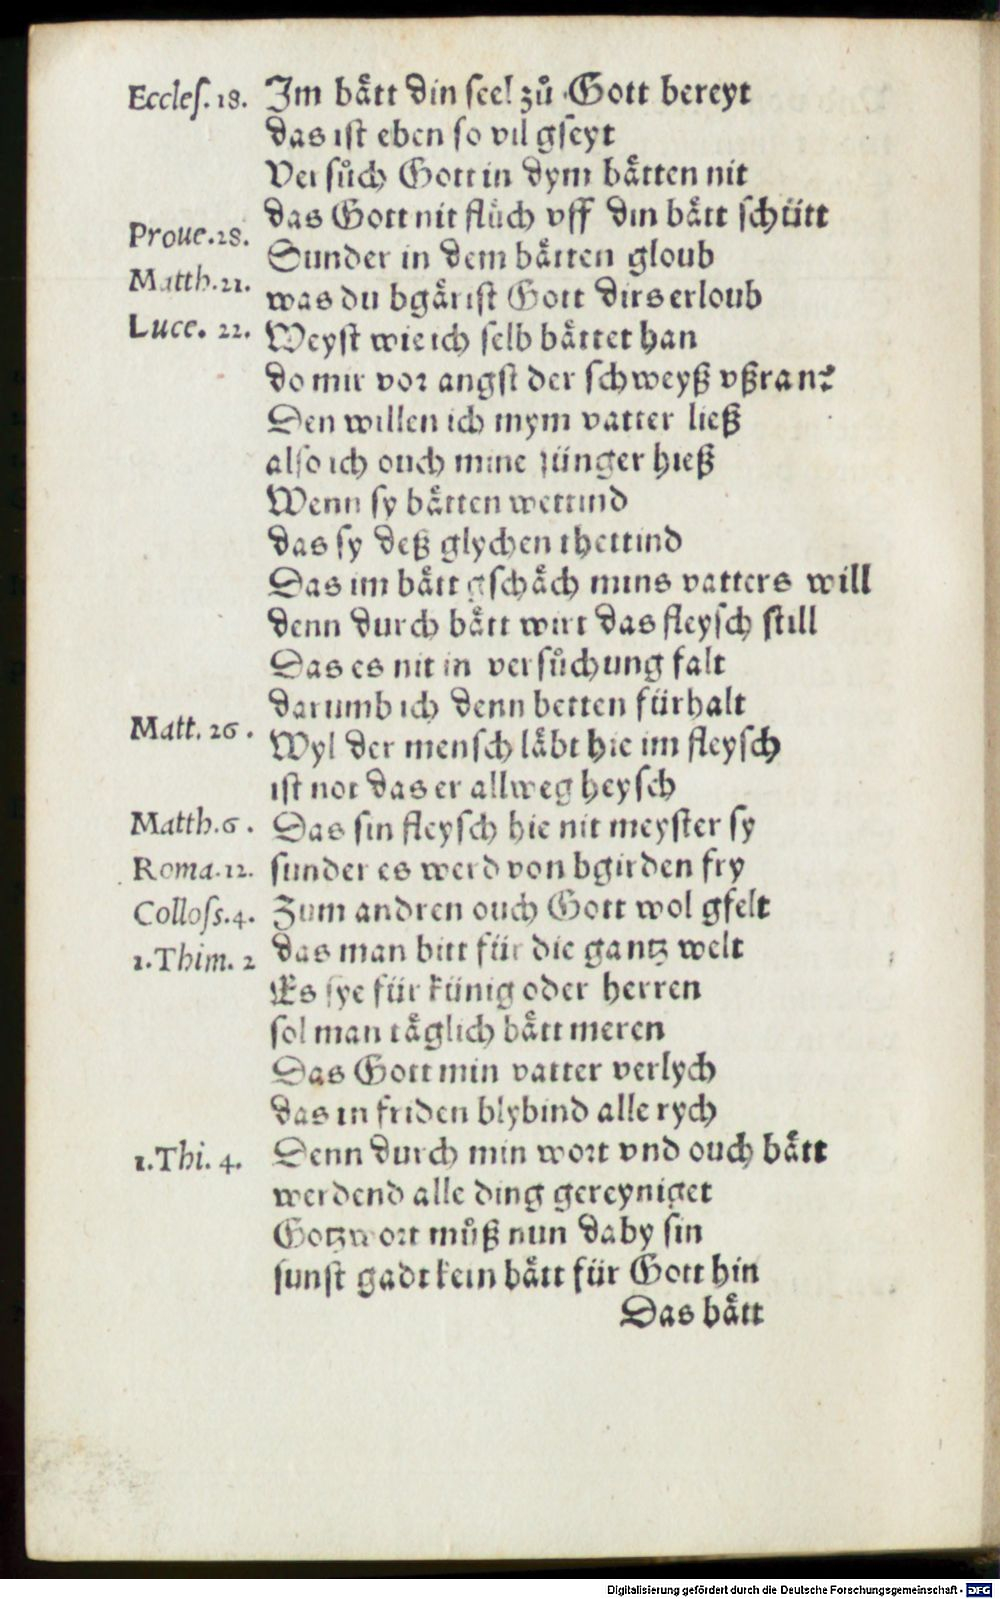 Eccles. 18. Im baͤtt din seel zuͦ Gott bereyt
das ist eben so vil gseyt
Versuͦch Gott in dym baͤtten nit
das Gott nit fluͦch vff din baͤtt schütt
Proue. 28. Sunder in dem baͤtten gloub
Matth. 21. was du bgaͤrist Gott dirs erloub
Luce. 22. Weyst wie ich selb baͤttet han
do mir vor angst der schweyß vßran?
Den willen ich mym vatter ließ
also ich ouch mine jünger hieß
Wenn sy baͤtten wettind
das sy deß glychen thettind
Das im baͤtt gschaͤch mins vatters will
denn durch baͤtt wirt das fleysch still
Das es nit in versuͦchung falt
darumb ich denn betten fürhalt
Matt. 26. Wyl der mensch laͤbt hie im fleysch
ist not das er allweg heysch
Matth. 6. Das sin fleysch hie nit meyster sy
Roma. 12. sunder es werd von bgirden fry
Colloss. 4. Zum andren ouch Gott wol gfelt
1. Thim. 2 das man bitt für die gantz welt
Es sye für künig oder herren
sol man taͤglich baͤtt meren
Das Gott min vatter verlych
das in friden blybind alle rych
1. Thi. 4. Denn durch min wort vnd ouch baͤtt
werdend alle ding gereyniget
Gotzwort muͦß nun daby sin
sunst gadt kein baͤtt für Gott hin
Das baͤtt
Digitalisierung gefördert durch die Deutsche Forschungsgemeinschaft - DFG